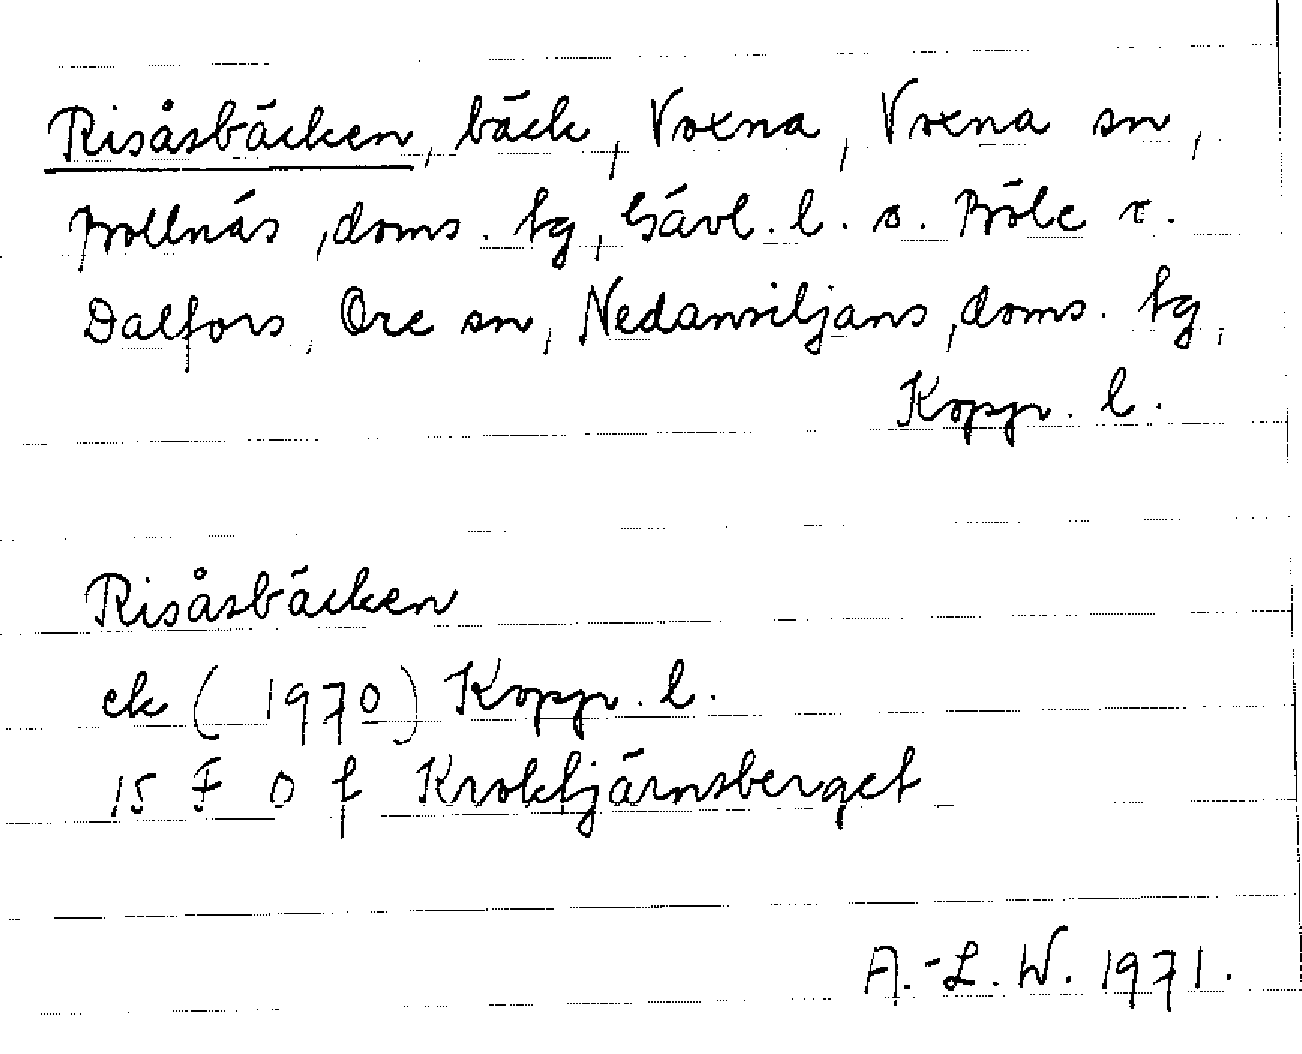 Risåsbäcken, bäck, Voxna, Voxna sn,
Bollnäs, doms. tg, Gävl. l. o. Böle r.
Dalfors, Ore sn, Nedansiljans, doms. tg,
Kopp. l.
Risåsbäcken
ek (1970) Kopp. l.
15 F 0 f Kroktjärnsberget
A.-L. W. 1971.